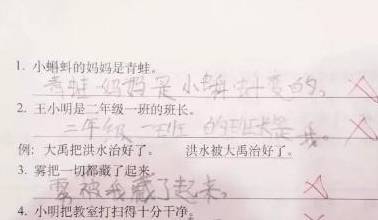 1. 小蝌蚪的妈妈是青蛙。
青蛙妈妈是小蝌蚪变的。
2. 王小明是二年级一班的班长。
二年级一班的班长是我。
例：大禹把洪水治好了。 洪水被大禹治好了。
3. 雾把一切都藏了起来。
雾被我藏了起来。
4. 小明把教室打扫得十分干净。